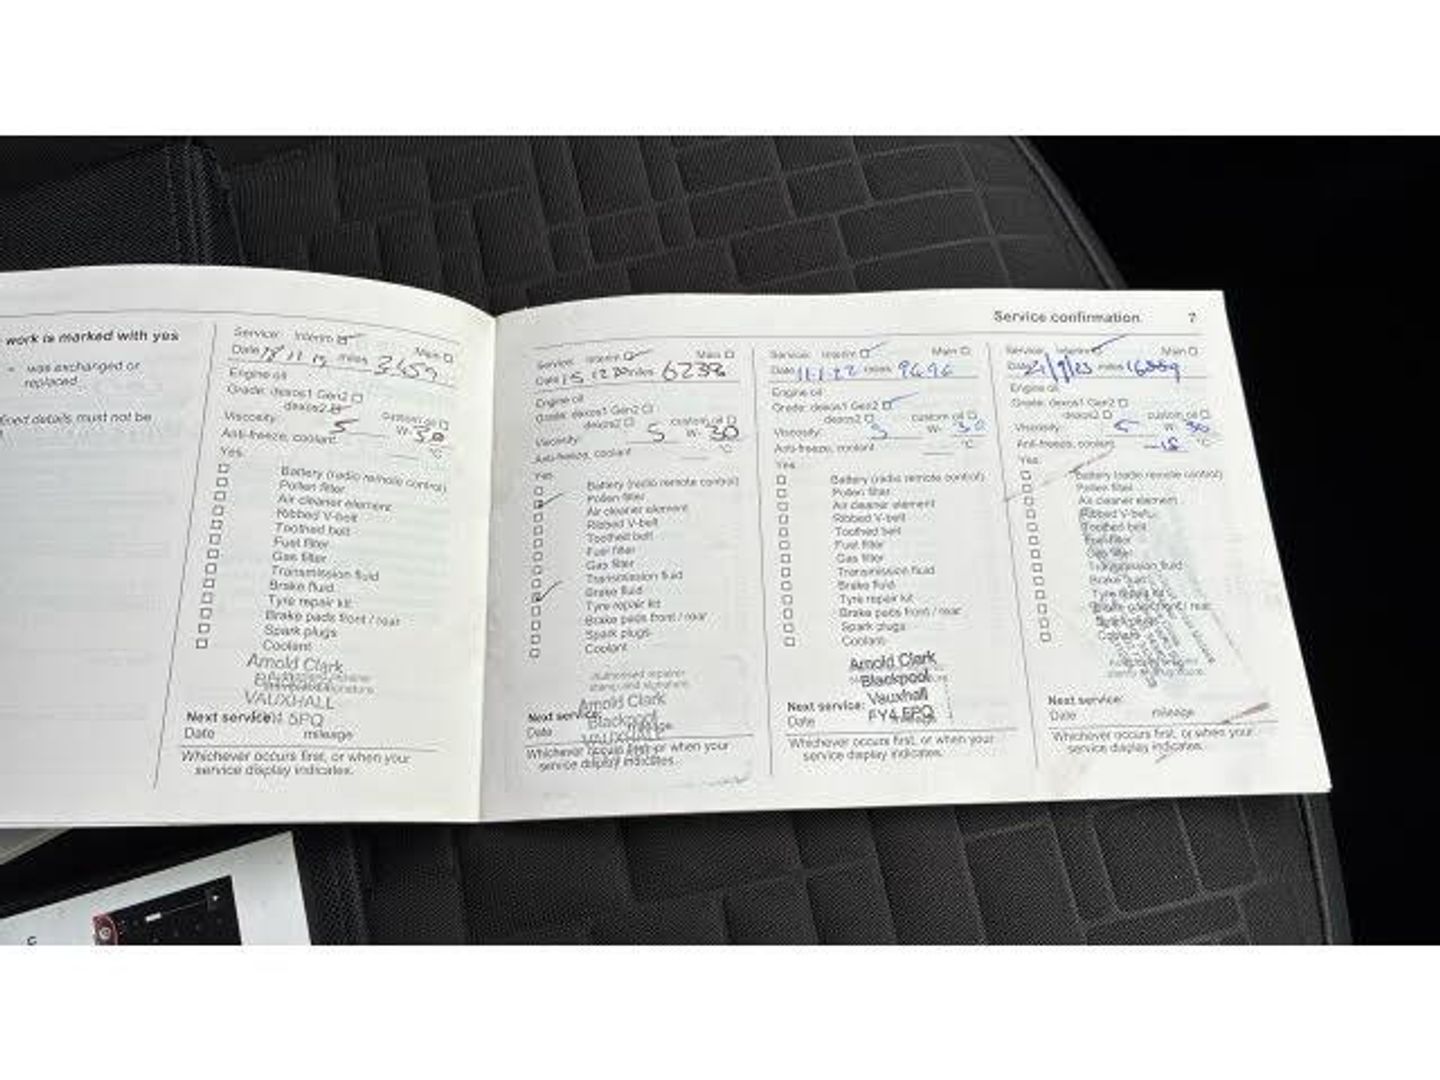 work is marked with yes
= was exchanged or
replaced
fined details must not be
Service: Interim Main
Date 18 11 19 miles 3459
Engine oil
Grade: dexos1 Gen2
dexos2 custom oil
Viscosity: 5 W- 30
Anti-freeze, coolant °C
Yes
Battery (radio remote control)
Pollen filter
Air cleaner element
Ribbed V-belt
Toothed belt
Fuel filter
Gas filter
Transmission fluid
Brake fluid
Tyre repair kit
Brake pads front / rear
Spark plugs
Coolant
Arnold Clark
VAUXHALL
Next service: 5PQ
Date mileage
Whichever occurs first, or when your
service display indicates.
Service confirmation 7
Service: Interim Main
Date 15 12 20 miles 6238
Engine oil
Grade: dexos1 Gen2
dexos2 custom oil
Viscosity: 5 W- 30
Anti-freeze, coolant °C
Yes
Battery (radio remote control)
Pollen filter
Air cleaner element
Ribbed V-belt
Toothed belt
Fuel filter
Gas filter
Transmission fluid
Brake fluid
Tyre repair kit
Brake pads front / rear
Spark plugs
Coolant
Authorised repairer
stamp and signature
Arnold Clark
Blackpool
VAUXHALL
Next service:
Date mileage
Whichever occurs first, or when your
service display indicates.
Service: Interim Main
Date 11.1.22 miles 9696
Engine oil
Grade: dexos1 Gen2
dexos2 custom oil
Viscosity: 5 W- 30
Anti-freeze, coolant °C
Yes
Battery (radio remote control)
Pollen filter
Air cleaner element
Ribbed V-belt
Toothed belt
Fuel filter
Gas filter
Transmission fluid
Brake fluid
Tyre repair kit
Brake pads front / rear
Spark plugs
Coolant
Arnold Clark
Blackpool
Vauxhall
Next service: FY4 5PQ
Date
Whichever occurs first, or when your
service display indicates.
Service: Interim Main
Date 21/9/23 miles
Engine oil
Grade: dexos1 Gen2
dexos2 custom oil
Viscosity: 5 W 30
Anti-freeze, coolant -18 °C
Yes
Battery (radio remote control)
Pollen filter
Air cleaner element
Ribbed V-belt
Toothed belt
Fuel filter
Gas filter
Transmission fluid
Brake fluid
Tyre repair kit
Brake pads front / rear
Spark plugs
Coolant
Next service:
Date mileage
Whichever occurs first, or when your
service display indicates.